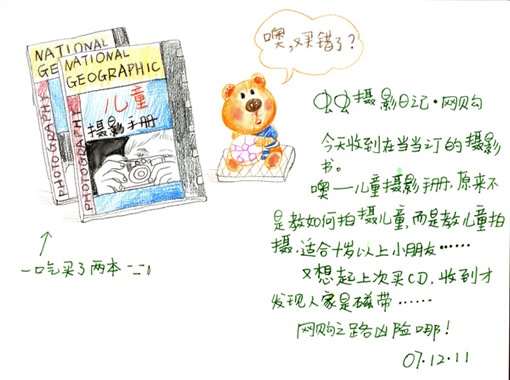 NATIONAL
GE
PHOTOGRAPHY
NATIONAL
GEOGRAPHIC
儿童
摄影手册
PHOTOGRAPHY
噢,又买错了?
虫虫摄影日记·网购
今天收到在当当订的摄影
书。
噢——儿童摄影手册,原来不
是教如何拍摄儿童,而是教儿童拍
摄,适合十岁以上小朋友……
又想起上次买CD,收到才
发现人家是磁带……
网购之路凶险哪!
07.12.11
一口气买了两本